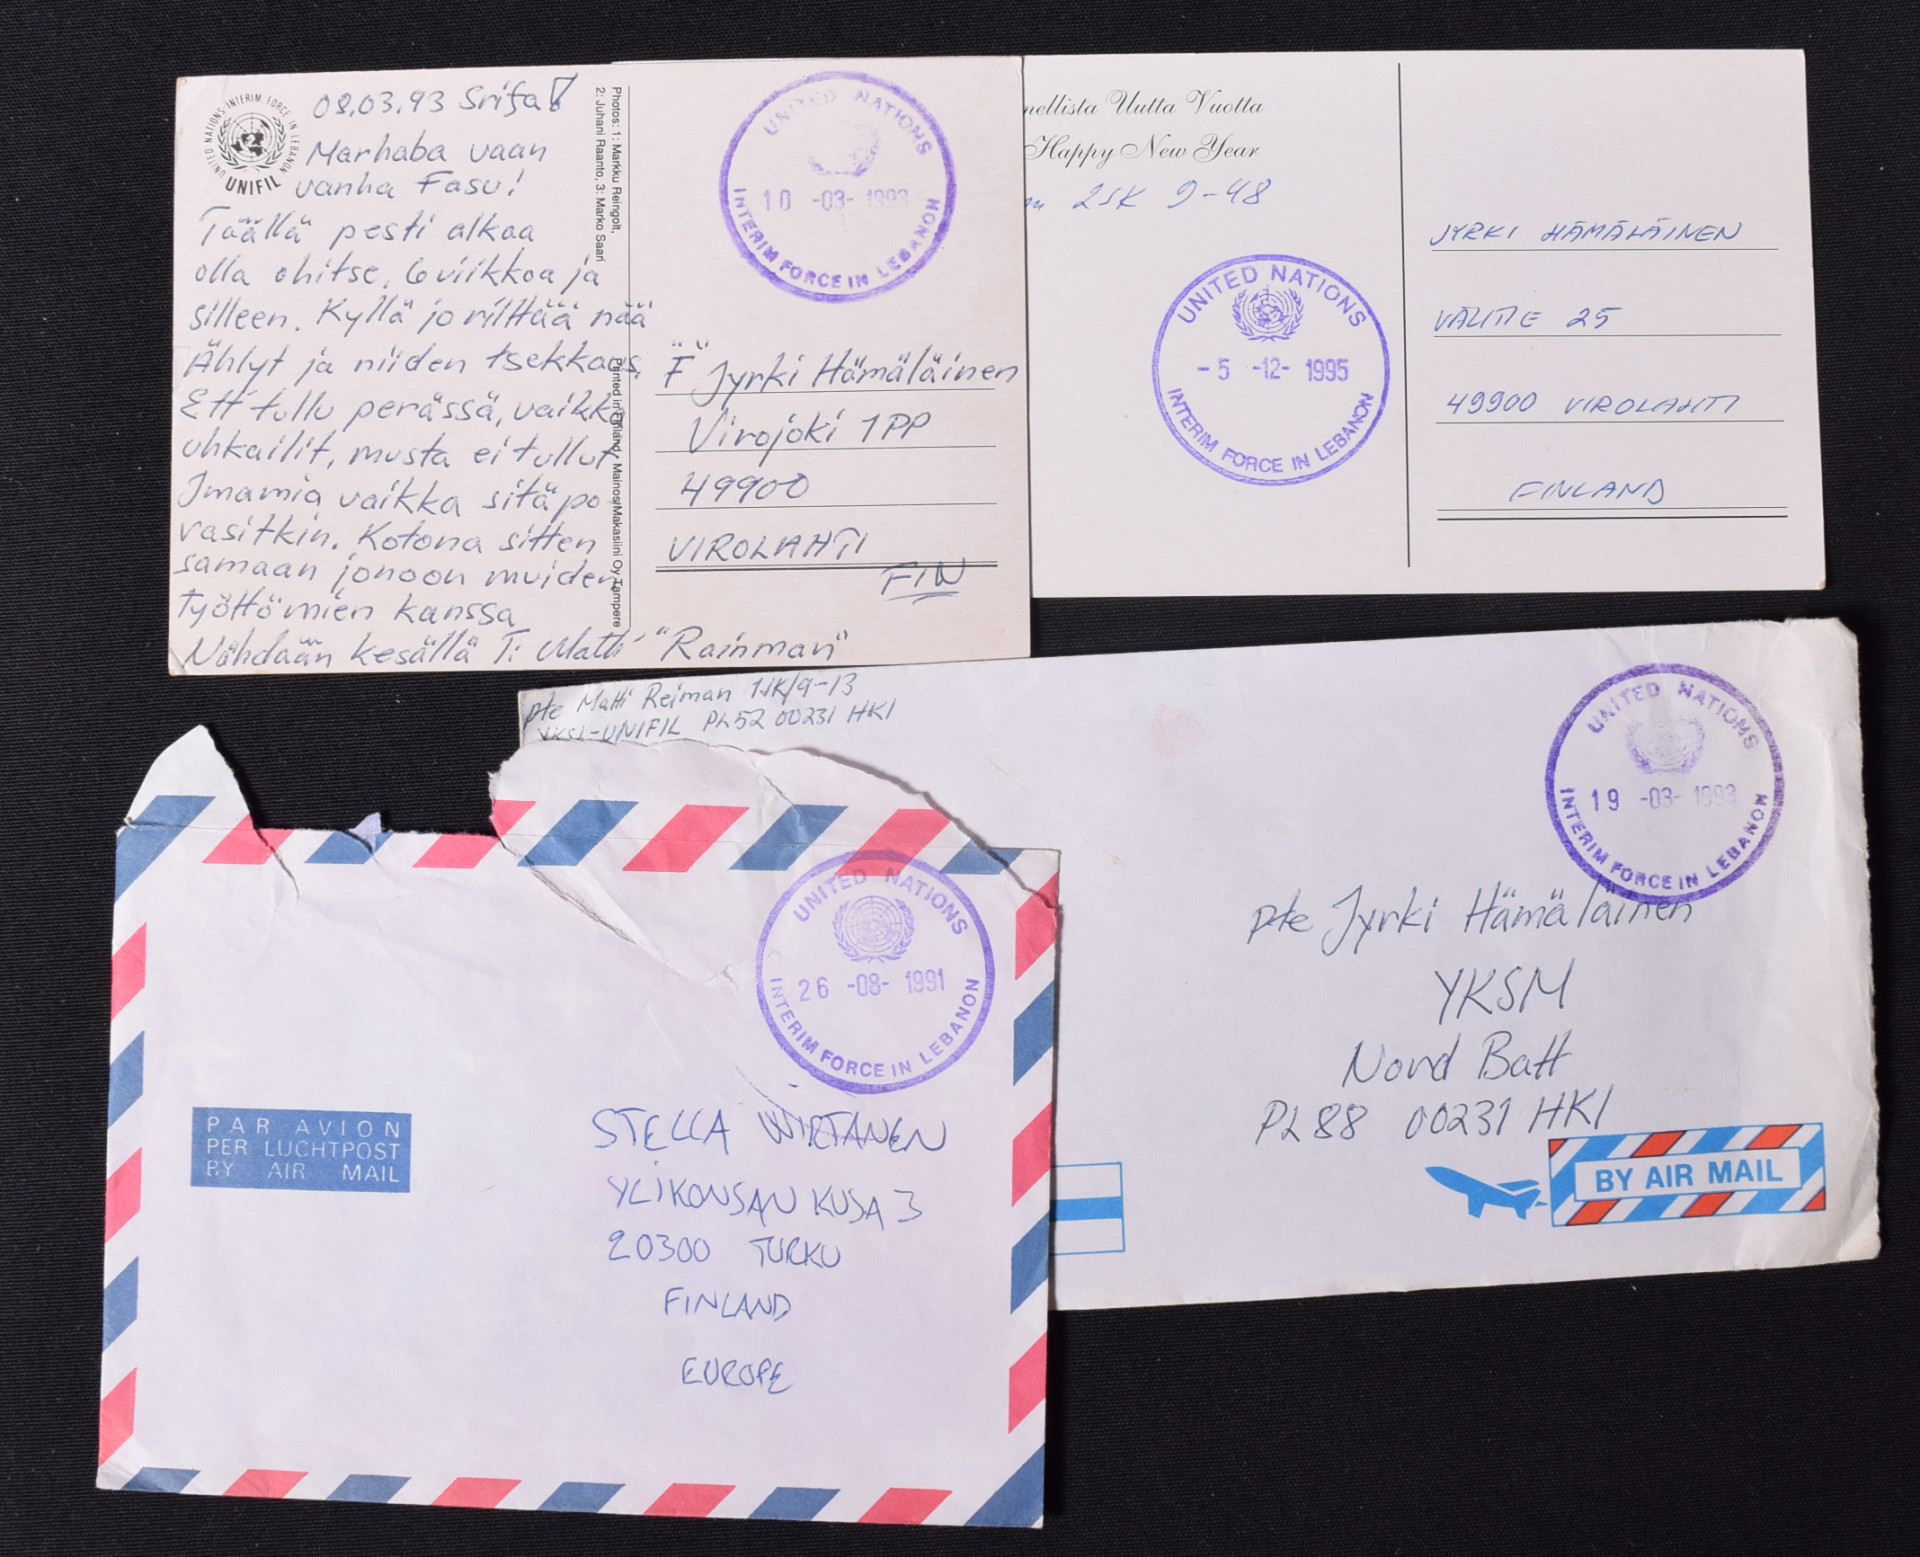 UNITED NATIONS INTERIM FORCE IN LEBANON
UNIFIL
08.03.93 Srifa!
Marhaba vaan
vanha Fasu!
Täällä pesti alkaa
olla ohitse. 6 viikkoa ja
silleen. Kyllä jo riittää nää
Ählyt ja niiden tsekkaus.
Ett tullu perässä, vaikka
uhkailit, musta ei tullut
Imamia vaikka sitä po
vasitkin. Kotona sitten
samaan jonoon muiden
työttömien kanssa
Nähdään kesällä T: Matti "Rainman"
Photos: 1: Markku Reingolt,
2: Juhani Raanto, 3: Marko Saari
Printed in Finland, Mainos/Makasiini Oy Tampere
UNITED NATIONS
10 -03- 1993
INTERIM FORCE IN LEBANON
"F" Jyrki Hämäläinen
Virojoki 1PP
49900
VIROLAHTI
FIN
nellista Uutta Vuotta
Happy New Year
2SK 9-48
UNITED NATIONS
-5 -12- 1995
INTERIM FORCE IN LEBANON
JYRKI HÄMÄLÄINEN
VÄLITIE 25
49900 VIROLAHTI
FINLAND
pte Matti Reiman 1JK/9-13
YKSL-UNIFIL PL52 00231 HKI
UNITED NATIONS
19 -03- 1993
INTERIM FORCE IN LEBANON
pte Jyrki Hämäläinen
YKSM
Nord Batt
PL 88 00231 HKI
BY AIR MAIL
UNITED NATIONS
26 -08- 1991
INTERIM FORCE IN LEBANON
PAR AVION
PER LUCHTPOST
BY AIR MAIL
STELLA WIRTANEN
YLIKONSAN KUSA 3
20300 TURKU
FINLAND
EUROPE